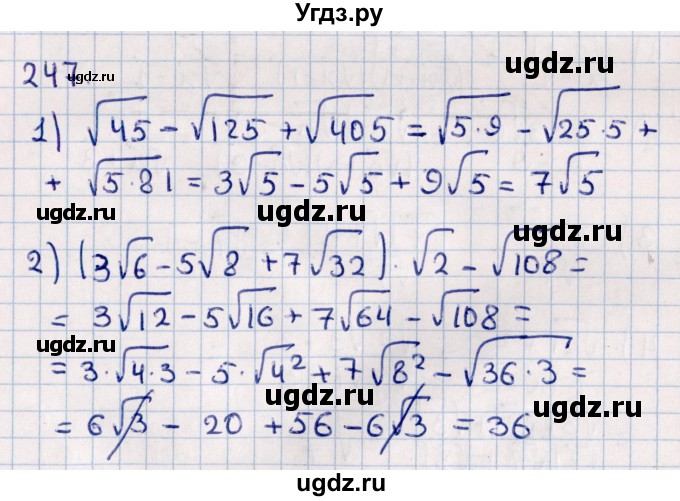 Угдз.ру
247 ugdz.ru
ugdz.ru
1) √45 − √125 + √405 = √5·9 − √25·5 +
+ √5·81 = 3√5 − 5√5 + 9√5 = 7√5
ugdz.ru
ugdz.ru
ugdz.ru
2) (3√6 − 5√8 + 7√32) · √2 − √108 =
ugdz.ru
= 3√12 − 5√16 + 7√64 − √108 =
ugdz.ru
ugdz.ru
= 3·√4·3 − 5·√4² + 7√8² − √36·3 =
ugdz.ru
= 6√3 − 20 + 56 − 6√3 = 36
ugdz.ru
ugdz.ru
ugdz.ru